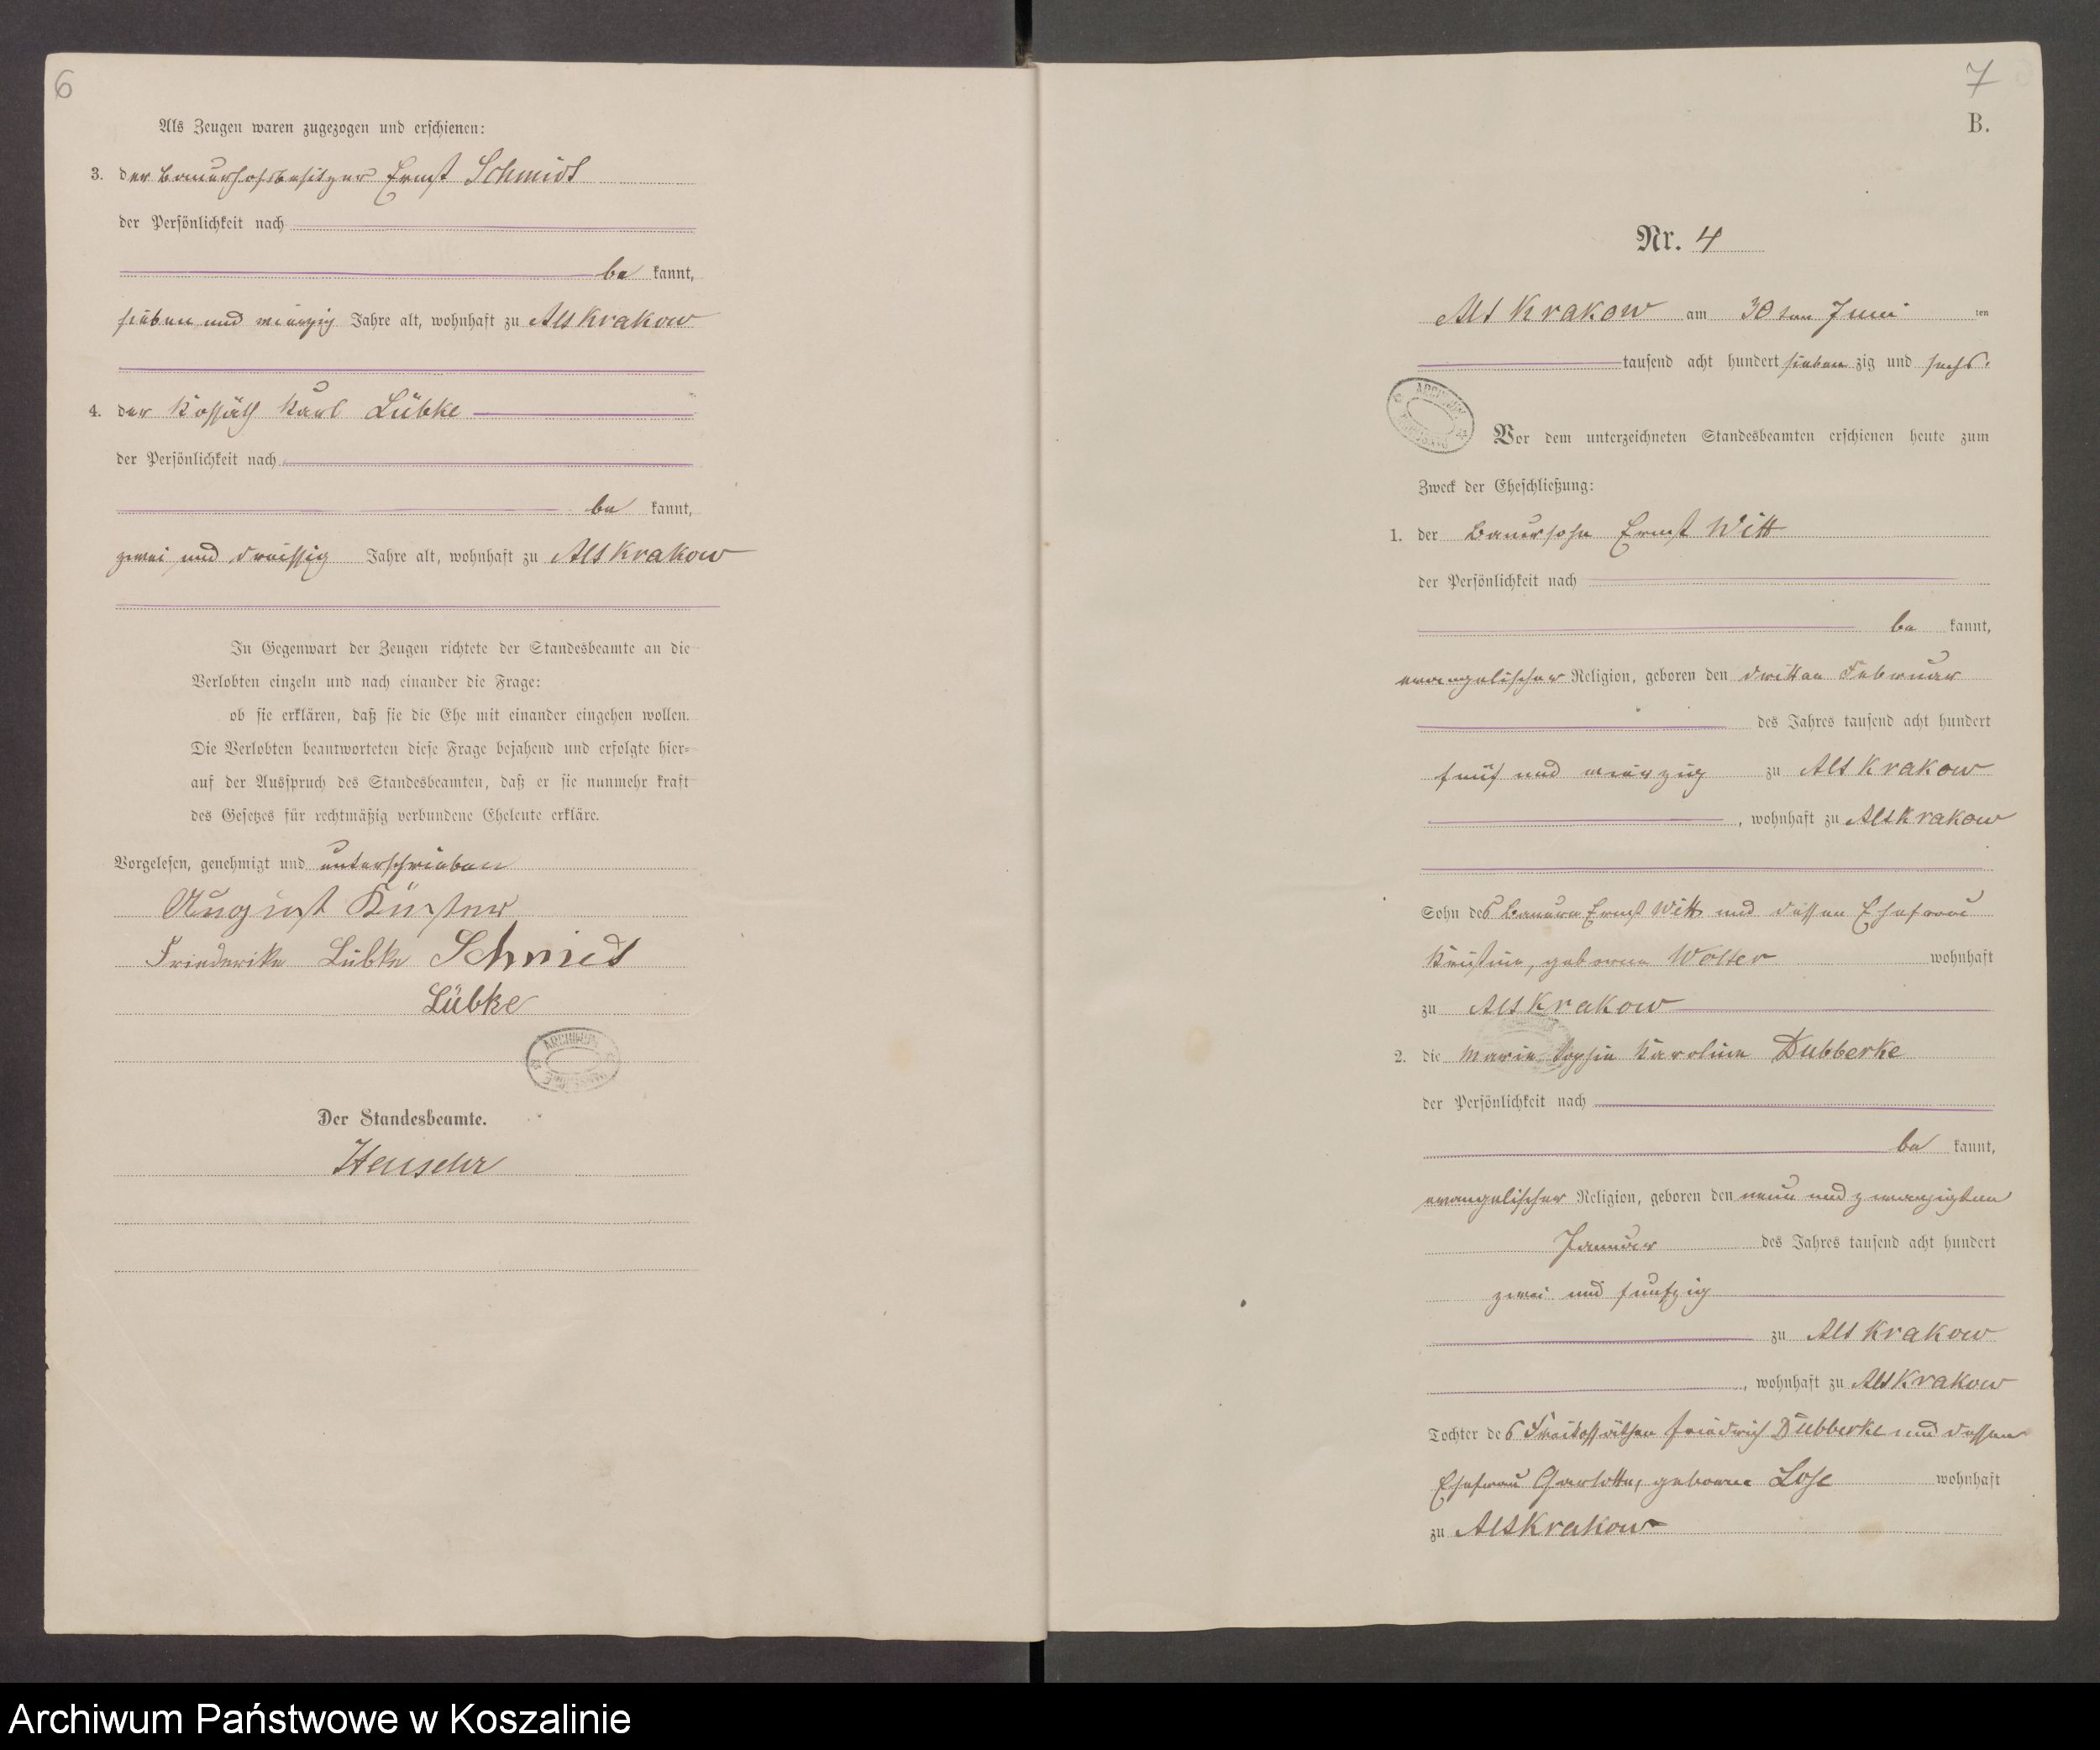 6
Als Zeugen waren zugezogen und erschienen:
3. der Bauerhofsbesitzer Ernst Schmidt
der Persönlichkeit nach
be kannt,
sieben und vierzig Jahre alt, wohnhaft zu Alt Krakow
4. der Kossäth Karl Lübke
der Persönlichkeit nach
be kannt,
zwei und dreissig Jahre alt, wohnhaft zu Alt Krakow
In Gegenwart der Zeugen richtete der Standesbeamte an die
Verlobten einzeln und nach einander die Frage:
ob sie erklären, daß sie die Ehe mit einander eingehen wollen.
Die Verlobten beantworteten diese Frage bejahend und erfolgte hier-
auf der Ausspruch des Standesbeamten, daß er sie nunmehr kraft
des Gesetzes für rechtmäßig verbundene Eheleute erkläre.
Vorgelesen, genehmigt und unterschrieben
August Küster
Friederike Lübke Schmidt
Lübke
ARCHIWUM
Der Standesbeamte.
7
B.
Nr. 4
Alt Krakow am 30 ten Juni ten
tausend acht hundert sieben zig und sechs.
ARCHIWUM
Vor dem unterzeichneten Standesbeamten erschienen heute zum
Zweck der Eheschließung:
1. der Bauersohn Ernst Witt
der Persönlichkeit nach
be kannt,
evangelischer Religion, geboren den dritten Februar
des Jahres tausend acht hundert
fünf und vierzig zu Alt Krakow
, wohnhaft zu Alt Krakow
Sohn des Bauern Ernst Witt und dessen Ehefrau
Kristine, geborne Wolter wohnhaft
zu Alt Krakow
2. die Marie Sophie Karoline Dubberke
der Persönlichkeit nach
be kannt,
evangelischer Religion, geboren den neun und zwanzigsten
Januar des Jahres tausend acht hundert
zwei und funfzig
zu Alt Krakow
, wohnhaft zu Alt Krakow
Tochter des Freikossäthen Friedrich Dubberke und dessen
Ehefrau Charlotte, geborne Lose wohnhaft
zu Alt Krakow
Archiwum Państwowe w Koszalinie